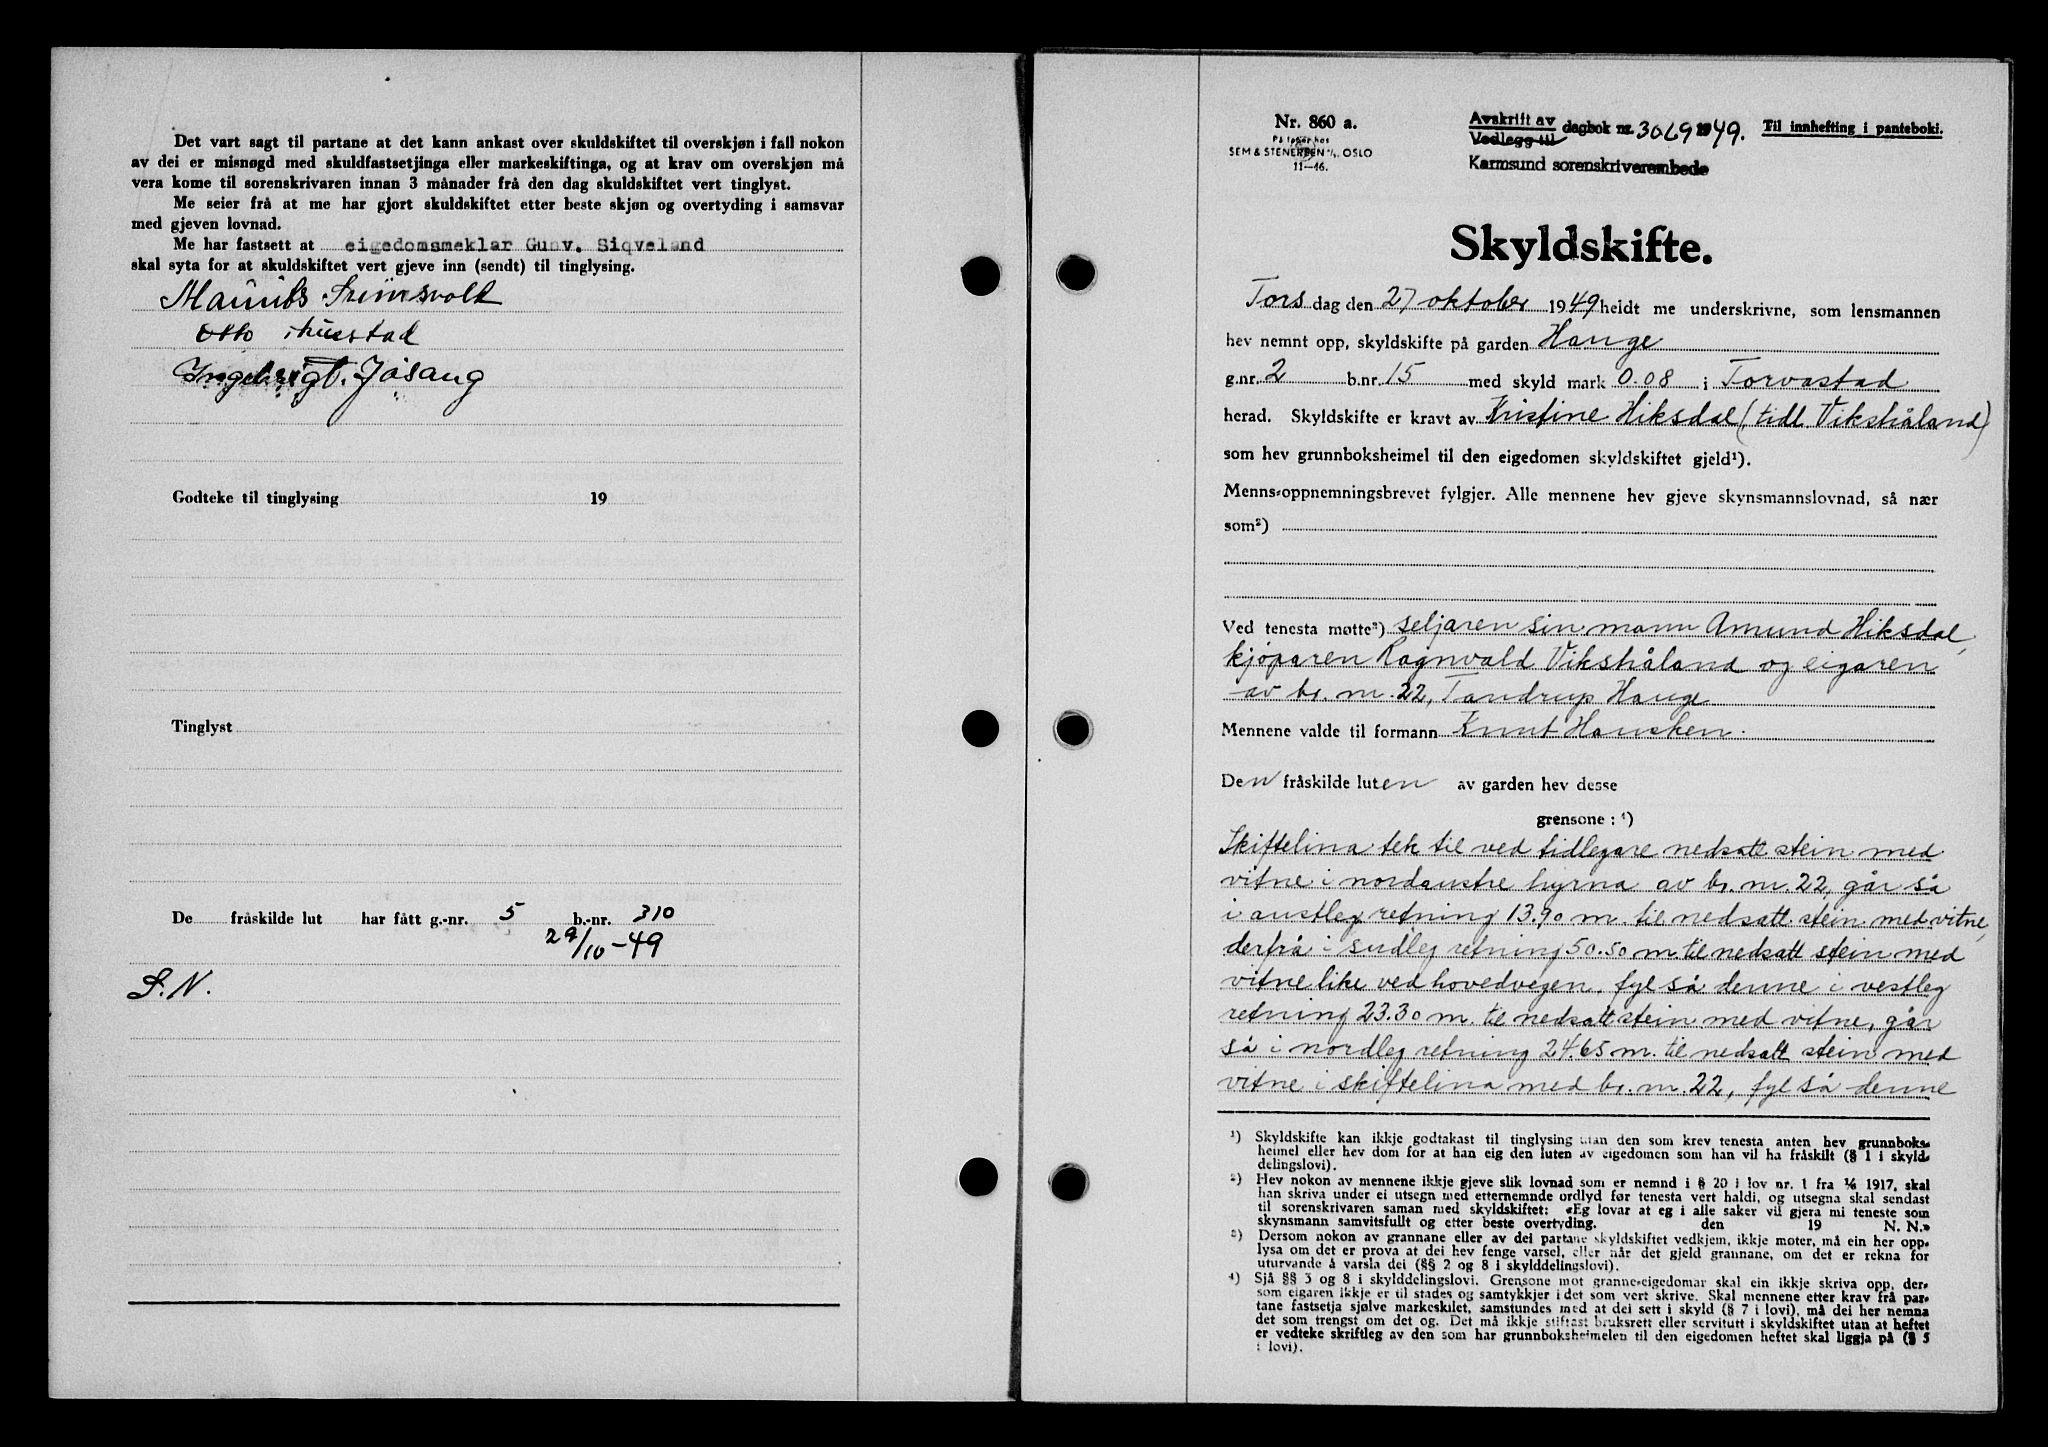 Det vart sagt til partane at det kann ankast over skuldskiftet til overskjøn i fall nokon
av dei er misnøgd med skuldfastsetjinga eller markeskiftinga, og at krav om overskjøn må
vera kome til sorenskrivaren innan 3 månader frå den dag skuldskiftet vert tinglyst.
Me seier frå at me har gjort skuldskiftet etter beste skjøn og overtyding i samsvar
med gjeven lovnad.
Me har fastsett at eigedomsmeklar Gunv. Siqveland
skal syta for at skuldskiftet vert gjeve inn (sendt) til tinglysing.
Otto
Ingebrigt. Jøsang
Godteke til tinglysing 19
Tinglyst
De fråskilde lut har fått g.-nr. 5 b.-nr. 310
29/10-49
S.N.
Nr. 860 a.
På lager hos
SEM & STENERSEN A/S, OSLO
11—46.
Avskrift av
Vedlegg til dagbok nr. 3069 1949. Til innhefting i panteboki.
Karmsund sorenskriverembede
Skyldskifte.
Tors dag den 27 oktober 1949 heldt me underskrivne, som lensmannen
hev nemnt opp, skyldskifte på garden Hauge
g.nr. 2 b.nr. 15 med skyld mark 0.08 i Torvastad
herad. Skyldskifte er kravt av Kristine Hiksdal (tidl. Vikshåland)
som hev grunnboksheimel til den eigedomen skyldskiftet gjeld¹).
Menns-oppnemningsbrevet fylgjer. Alle mennene hev gjeve skynsmannslovnad, så nær
som²)
Ved tenesta møtte³) seljaren sin mann Amund Hiksdal,
kjøparen Ragnvald Vikshåland og eigaren
av br. nr. 22, Tandrup Hauge
Mennene valde til formann Knut Hausken.
Den fråskilde luten av garden hev desse
grensone: ⁴)
Skiftelina tek til ved tidlegare nedsatt stein med
vitne i nordaustre hyrna av br. nr. 22, går så
i austleg retning 13.90 m. til nedsatt stein med vitne,
derfrå i sudleg retning 50.50 m. til nedsatt stein med
vitne like ved hovedvegen, fyl så denne i vestleg
retning 23.30 m. til nedsatt stein med vitne, går
så i nordleg retning 24.65 m. til nedsatt stein med
vitne i skiftelina med br. nr. 22, fyl så denne
¹) Skyldskifte kan ikkje godtakast til tinglysing utan den som krev tenesta anten hev grunnboks-
heimel eller hev dom for at han eig den luten av eigedomen som han vil ha fråskilt (§ 1 i skyld-
delingslovi).
²) Hev nokon av mennene ikkje gjeve slik lovnad som er nemnd i § 20 i lov nr. 1 fra 1/6 1917, skal
han skriva under ei utsegn med etternemnde ordlyd før tenesta vert haldi, og utsegna skal sendast
til sorenskrivaren saman med skyldskiftet: «Eg lovar at eg i alle saker vil gjera mi teneste som
skynsmann samvitsfullt og etter beste overtyding. den 19 N. N.»
³) Dersom nokon av grannane eller av dei partane skyldskiftet vedkjem, ikkje møter, må ein her opp-
lysa om det er prova at dei hev fenge varsel, eller når det gjeld grannane, om det er rekna for
uturvande å varsla dei (§§ 2 og 8 i skylddelingslovi).
⁴) Sjå §§ 3 og 8 i skylddelingslovi. Grensone mot granne-eigedomar skal ein ikkje skriva opp, der-
som eigaren ikkje er til stades og samtykkjer i det som vert skrive. Skal mennene etter krav frå par-
tane fastsetja sjølve markeskilet, samstundes med at dei sett i skyld (§ 7 i lovi), må dei her nemna
det som trengst om det og. Det må ikkje stiftast bruksrett eller servitutt i skyldskiftet utan at heftet
er vedteke skriftleg av den som har grunnboksheimelen til den eigedomen heftet skal liggja på (§ 5
i lovi).